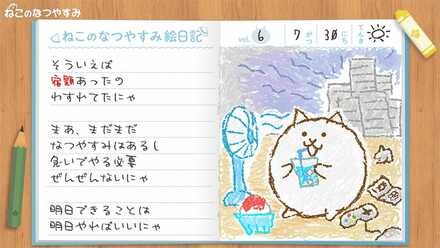 ねこのなつやすみ
ねこのなつやすみ絵日記
vol. 6
7 がつ 30 にち てんき
そういえば
宿題あったの
わすれてたにゃ
まあ、まだまだ
なつやすみはあるし
急いでやる必要
ぜんぜんないにゃ
明日できることは
明日やればいいにゃ